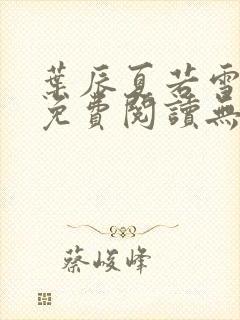 葉辰夏若雪
免費閱讀無
蔡峻峰